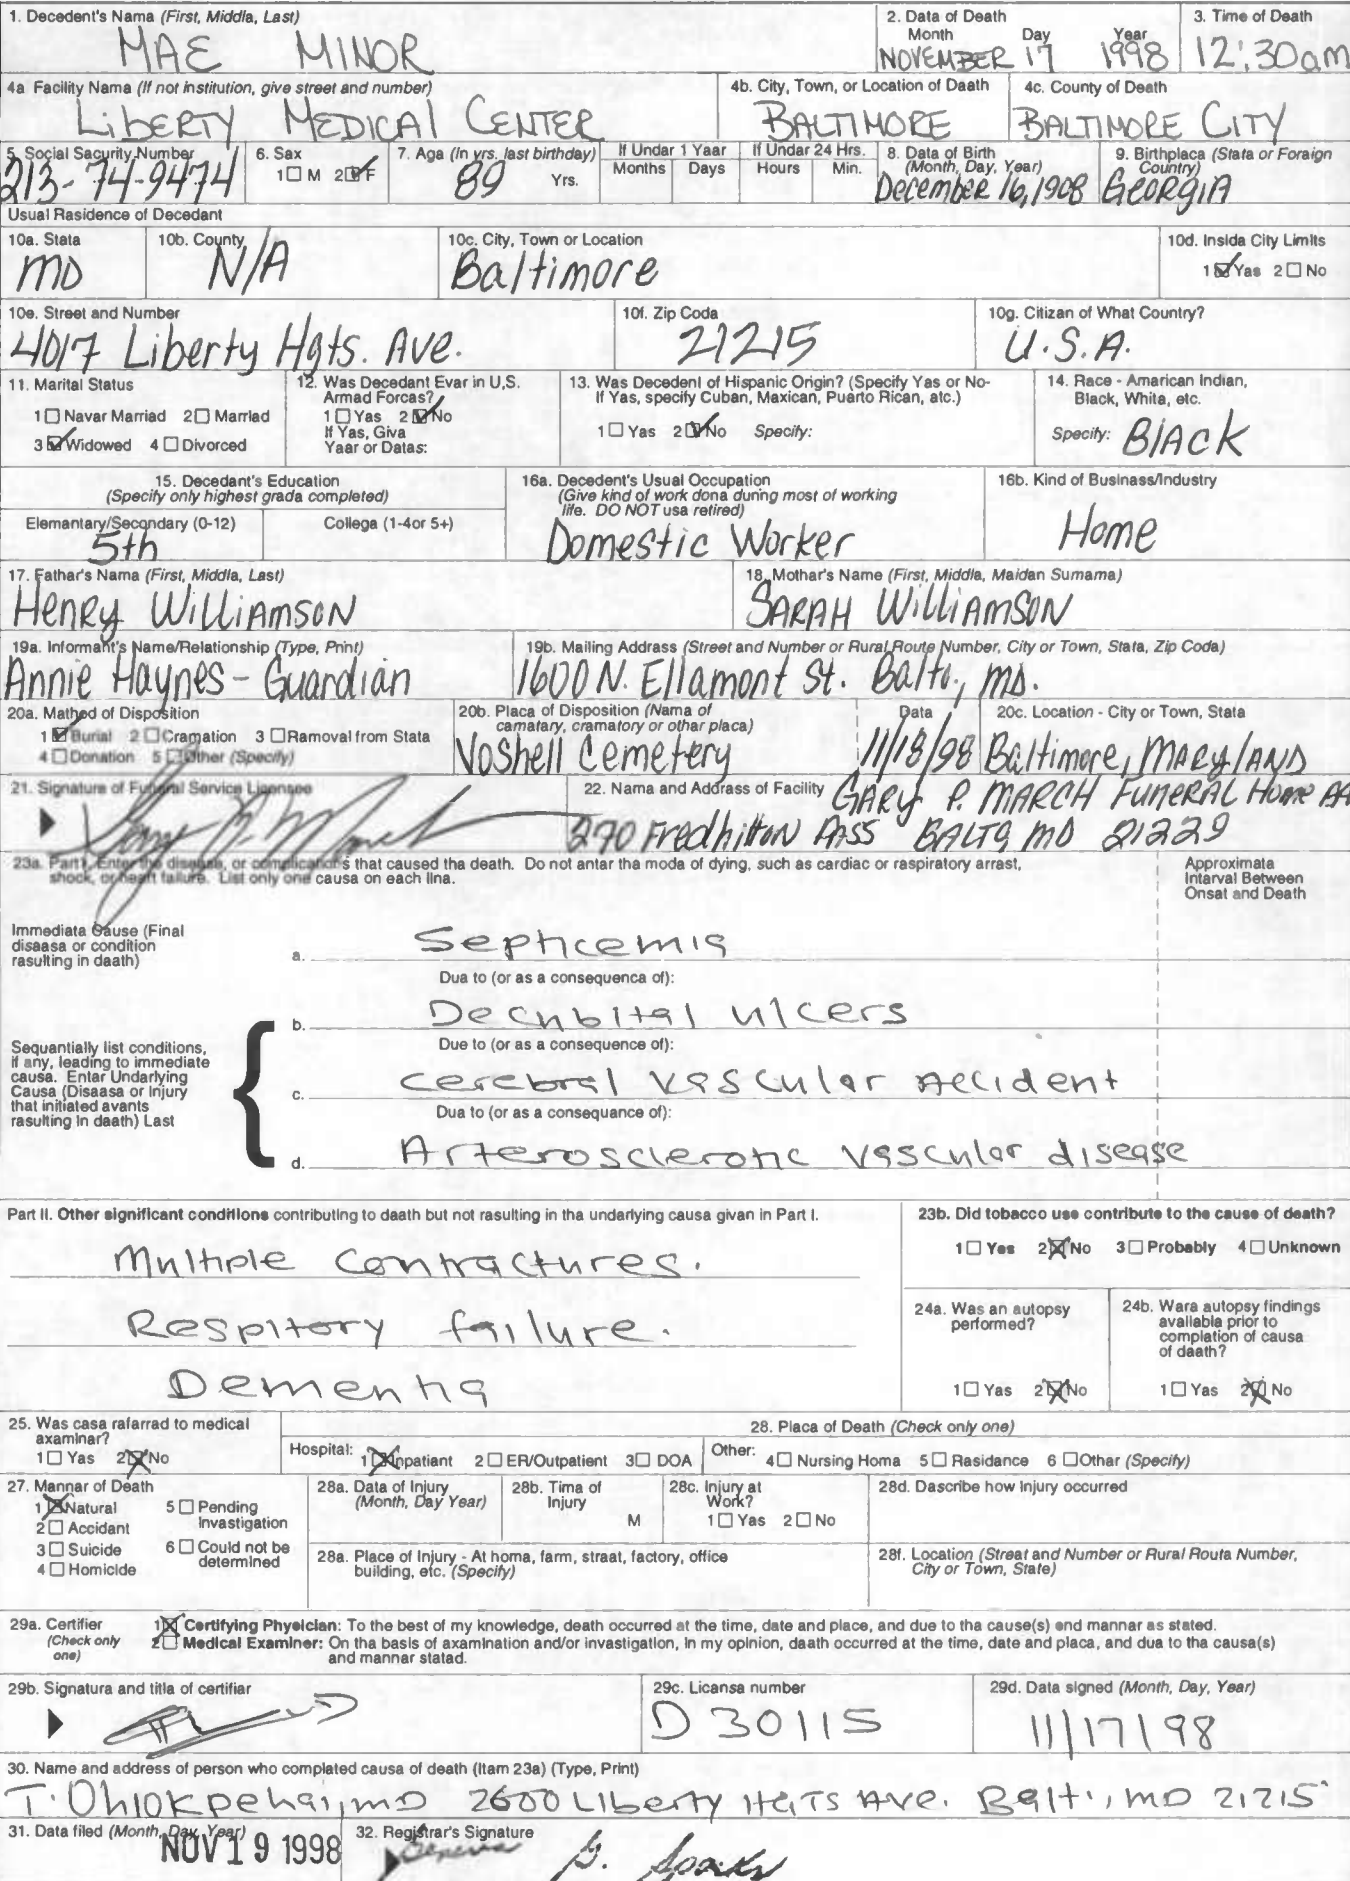 1. Decedent's Name (First, Middla, Last)
MAE MINOR
2. Data of Death
Month Day Year
NOVEMBER 17 1998
3. Time of Death
12:30am
4a Facility Name (If not institution, give street and number)
LIBERTY MEDICAL CENTER
4b. City, Town, or Location of Daath
BALTIMORE
4c. County of Death
BALTIMORE CITY
5. Social Sacurity Number
213-74-9474
6. Sax
1☐ M 2☑ F
7. Aga (In yrs. last birthday)
89 Yrs.
If Under 1 Year
Months Days
If Under 24 Hrs.
Hours Min.
8. Data of Birth
(Month, Day, Year)
December 16, 1908
9. Birthplaca (Stata or Foraign
Country)
GEORGIA
Usual Rasidence of Decedant
10a. Stata
MD
10b. County
N/A
10c. City, Town or Location
Baltimore
10d. Insida City Limits
1☑Yas 2☐ No
10e. Street and Number
4017 Liberty Hgts. Ave.
10f. Zip Coda
21215
10g. Citizan of What Country?
U.S.A.
11. Marital Status
1☐ Navar Marriad 2☐ Marrlad
3☑Widowed 4☐ Divorced
12. Was Decedant Evar in U.S.
Armad Forcas?
1☐Yas 2☑No
If Yas, Giva
Yaar or Datas:
13. Was Decedent of Hispanic Origin? (Specify Yas or No-
If Yas, specify Cuban, Maxican, Puarto Rican, atc.)
1☐ Yas 2☑No Specify:
14. Raca - Amarican Indian,
Black, Whita, etc.
Specify: BlACK
15. Decadant's Education
(Specify only highest grada completed)
Elemantary/Secondary (0-12)
5th
Collega (1-4or 5+)
16a. Decedent's Usual Occupation
(Give kind of work dona during most of working
life. DO NOT usa retired)
Domestic Worker
16b. Kind of Businass/Industry
Home
17. Fathar's Name (First, Middla, Last)
Henry Williamson
18. Mothar's Name (First, Middla, Maidan Sumama)
SARAH WilliAMSON
19a. Informant's Name/Relationship (Type, Print)
Annie Haynes - Guardian
19b. Mailing Address (Street and Number or Rural Route Number, City or Town, Stata, Zip Coda)
1600 N. Ellamont St. Balto., MD.
20a. Mathod of Disposition
1☑Burial 2☐Cramation 3☐Ramoval from Stata
4☐Donation 5☐Other (Specify)
20b. Placa of Disposition (Nama of
camatary, cramatory or othar placa)
Voshell Cemetery
Data
11/18/98
20c. Location - City or Town, Stata
Baltimore, MARYlAND
21. Signature of Funeral Service Licensee
22. Name and Address of Facility GARY P. MARCH FUNERAL Home
270 Fredhilton PASS BALTO MD 21229
23a. Part I. Enter the disease, or complications that caused tha death. Do not antar tha moda of dying, such as cardiac or raspiratory arrast,
shock, or heart failure. List only one causa on each lina.
Approximata
Intarval Between
Onsat and Death
Immediata Cause (Final
disaasa or condition
rasulting in daath)
a. Septicemia
Dua to (or as a consequenca of):
b. Decubital ulcers
Sequantially list conditions,
if any, leading to immediate
causa. Entar Underlying
Causa (Disaasa or Injury
that initiated avants
rasulting in daath) Last
Due to (or as a consequence of):
c. cerebral vascular Accident
Dua to (or as a consequance of):
d. Arterosclerotic vascular disease
Part II. Other significant conditions contributing to daath but not rasulting in tha undarlying causa givan in Part I.
Multiple Contractures.
Respitory failure.
Dementia
23b. Did tobacco use contribute to the cause of death?
1☐ Yes 2☒No 3☐ Probably 4☐ Unknown
24a. Was an autopsy
performed?
1☐ Yas 2☒No
24b. Wara autopsy findings
availabla prior to
complation of causa
of daath?
1☐ Yas 2☒ No
25. Was casa rafarrad to medical
axaminar?
1☐ Yas 2☒No
28. Placa of Death (Check only one)
Hospital: 1☒Inpatiant 2☐ ER/Outpatient 3☐ DOA
Other: 4☐ Nursing Homa 5☐ Rasidance 6☐Othar (Specify)
27. Mannar of Death
1☒Natural 5☐ Pending
Invastigation
2☐ Accidant
3☐ Suicide 6☐ Could not be
determined
4☐ Homicide
28a. Data of Injury
(Month, Day Year)
28b. Tima of
Injury
M
28c. Injury at
Work?
1☐ Yas 2☐ No
28d. Dascribe how injury occurred
28a. Place of Injury - At homa, farm, straat, factory, office
building, etc. (Specify)
28f. Location (Streat and Number or Rural Routa Number,
City or Town, State)
29a. Certifier
(Check only
one)
1☒ Certifying Physician: To the best of my knowledge, death occurred at the time, date and place, and due to tha cause(s) and mannar as stated.
2☐ Medical Examiner: On tha basis of axamination and/or invastigation, in my opinion, daath occurred at the time, date and placa, and dua to tha causa(s)
and mannar statad.
29b. Signatura and titla of certifiar
29c. Licansa number
D 30115
29d. Data signed (Month, Day, Year)
11/17/98
30. Name and address of person who complated causa of death (Itam 23a) (Type, Print)
MD 2600 Liberty HGTS Ave. Balt., MD 21215
31. Data filed (Month, Day, Year)
NOV 19 1998
32. Registrar's Signature
Geneva G. Sparks